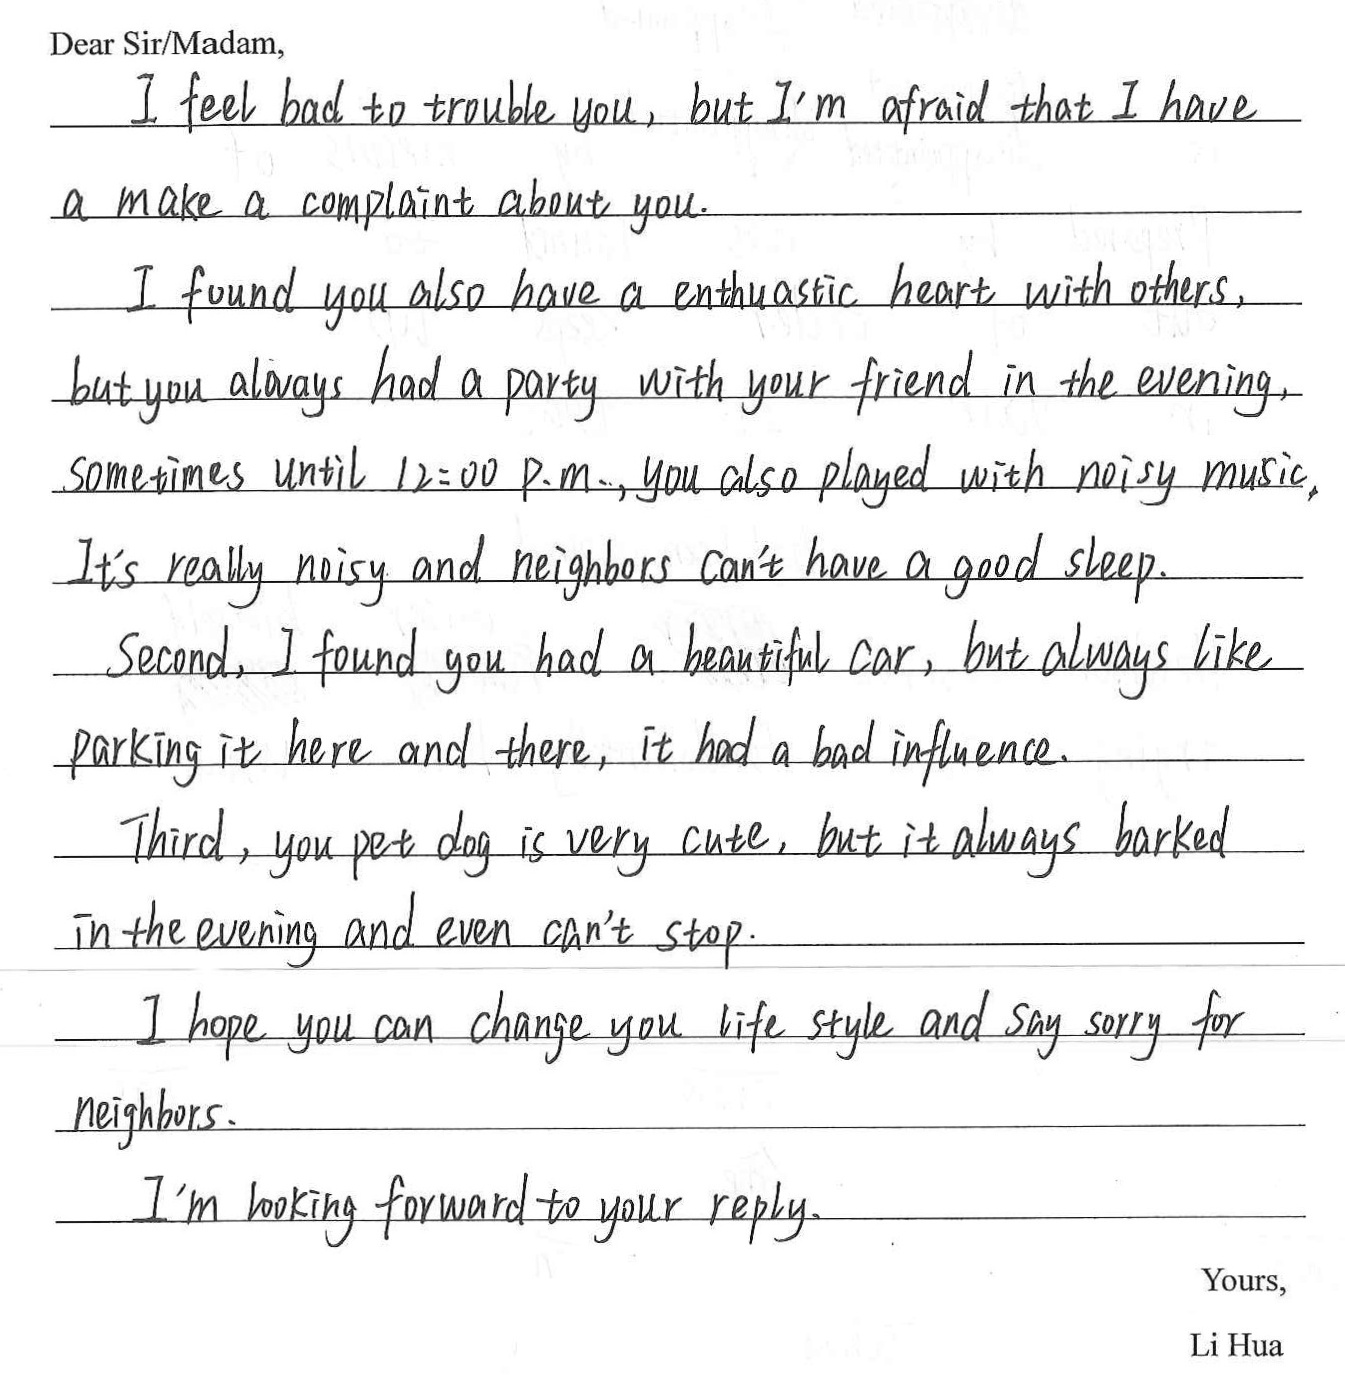 Dear Sir/Madam,
I feel bad to trouble you, but I'm afraid that I have
a make a complaint about you.
I found you also have a enthuastic heart with others,
but you always had a party with your friend in the evening,
sometimes until 12:00 p.m.., you also played with noisy music,
It's really noisy and neighbors can't have a good sleep.
Second, I found you had a beautiful car, but always like
parking it here and there, it had a bad influence.
Third, you pet dog is very cute, but it always barked
in the evening and even can't stop.
I hope you can change you life style and say sorry for
neighbors.
I'm looking forward to your reply.
Yours,
Li Hua